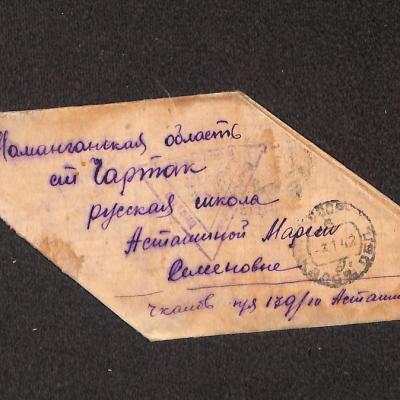 Наманганская область
ст Чартак
русская школа
Асташиной Марии
Семеновне
Чкалов п/я 179/10 Асташин
3 1 42